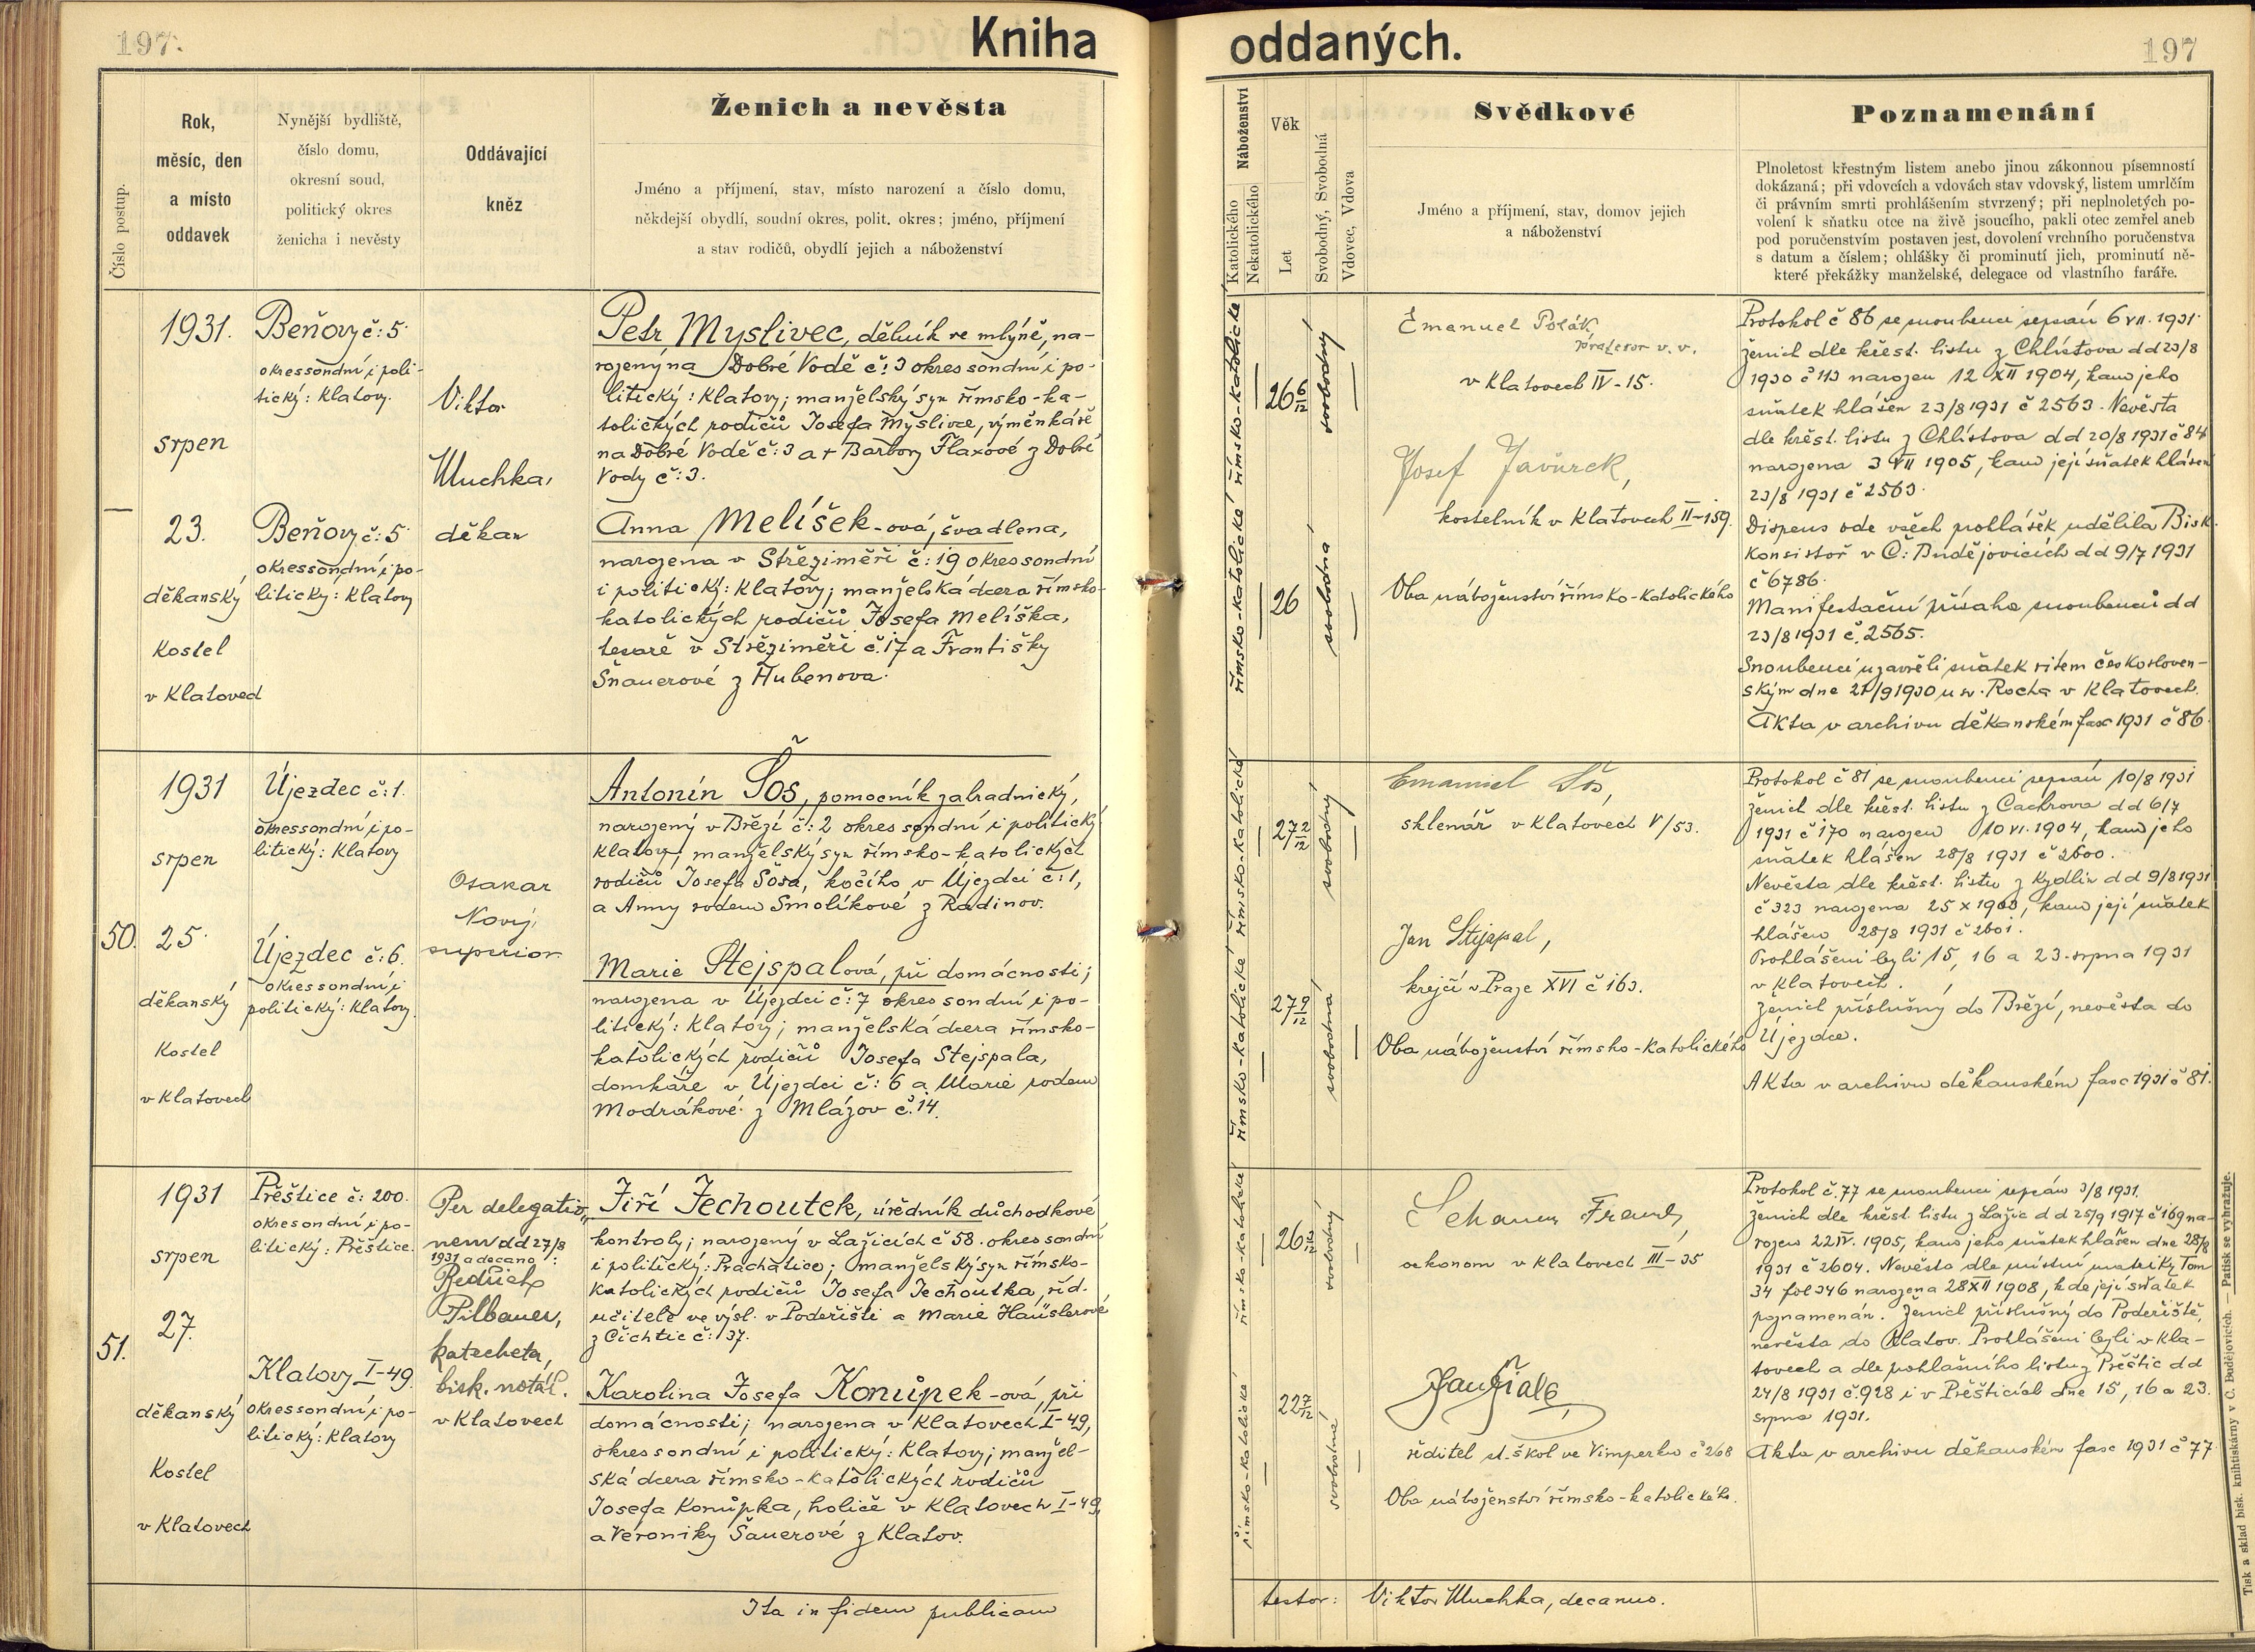 197.
Kniha
oddaných.
197
Číslo postup.
Rok,
měsíc, den
a místo
oddavek
Nynější bydliště,
číslo domu,
okresní soud,
politický okres
ženicha i nevěsty
Oddávající
kněz
Ženich a nevěsta
Jméno a příjmení, stav, místo narození a číslo domu,
někdejší obydlí, soudní okres, polit. okres; jméno, příjmení
a stav rodičů, obydlí jejich a náboženství
Náboženství
Katolického
Nekatolického
Věk
Let
Svobodný, Svobodná
Vdovec, Vdova
Svědkové
Jméno a příjmení, stav, domov jejich
a náboženství
Poznamenání
Plnoletost křestným listem anebo jinou zákonnou písemností
dokázaná; při vdovcích a vdovách stav vdovský, listem umrlčím
či právním smrti prohlášením stvrzený; při neplnoletých po-
volení k sňatku otce na živě jsoucího, pakli otec zemřel aneb
pod poručenstvím postaven jest, dovolení vrchního poručenstva
s datum a číslem; ohlášky či prominutí jich, prominutí ně-
které překážky manželské, delegace od vlastního faráře.
1931.
srpen
23.
děkanský
Kostel
v Klatovech
Beňovy č: 5
okres soudní i poli-
tický: Klatovy.
Beňovy č: 5
okres soudní i po-
litický: Klatovy
Viktor
Muchka,
děkan
Petr Myslivec, dělník ve mlýně, na-
rozený na Dobré Vodě č: 3 okres soudní i po-
litický: Klatovy; manželský syn římsko-ka-
tolických rodičů Josefa Myslivce, výměnkáře
na Dobré Vodě č: 3 a + Barbory Flaxové z Dobré
Vody č: 3.
Anna Melíšek-ová, švadlena,
narozena v Střeziměři č: 19 okres soudní
i politický: Klatovy; manželská dcera římsko-
katolických rodičů Josefa Melíška,
tesaře v Střeziměři č. 17 a Františky
Šnauerové z Hubenova.
římsko-katolické
římsko-katolické
26 6/12
26
svobodný
svobodná
Emanuel Polák
profesor v. v.
v Klatovech IV-15.
Josef Javůrek,
kostelník v Klatovech II-159.
Oba náboženství římsko-katolického
Protokol č 86 se snoubenci sepsán 6 VII. 1931.
Ženich dle křest. listu z Chlístova dd 23/8
1930 č 113 narozen 12 XII 1904, kam jeho
sňatek hlášen 23/8 1931 č 2563. Nevěsta
dle křest. listu z Chlístova dd 20/8 1931 č 84
narozena 3 VII 1905, kam její sňatek hlášen
23/8 1931 č 2563.
Dispens ode všech prohlášek udělila Bisk.
Konsistoř v Č: Budějovicích dd 9/7 1931
č 6786.
Manifestační přísaha snoubenců dd
23/8 1931 č. 2565.
Snoubenci uzavřeli sňatek ritem českosloven-
ským dne 27/9 1930 u sv. Rocha v Klatovech.
Akta v archivu děkanském fasc 1931 č 86.
50.
1931
srpen
25.
děkanský
Kostel
v Klatovech
Újezdec č: 1.
okres soudní i po-
litický: Klatovy
Újezdec č: 6.
okres soudní i
politický: Klatovy.
Otakar
Nový,
superior
Antonín Šos, pomocník zahradnický,
narozený v Březí č: 2 okres soudní i politický
Klatovy; manželský syn římsko-katolických
rodičů Josefa Šosa, kočího v Újezdci č: 1,
a Anny rodem Smolíkové z Radinov.
Marie Stejspalová, při domácnosti;
narozena v Újezdci č: 7 okres soudní i po-
litický: Klatovy; manželská dcera římsko-
katolických rodičů Josefa Stejspala,
domkáře v Újezdci č: 6 a Marie rodem
Modrákové z Mlázov č. 14.
římsko-katolické
římsko-katolické
27 2/12
27 9/12
svobodný
svobodná
Emanuel Šos,
sklenář v Klatovech V/53.
Jan Stejspal,
krejčí v Praze XVI č 163.
Oba náboženství římsko-katolického
Protokol č 81 se snoubenci sepsán 10/8 1931
Ženich dle křest. listu z Čachrova dd 6/7
1931 č 170 narozen 10 VI. 1904, kam jeho
sňatek hlášen 28/8 1931 č 2600.
Nevěsta dle křest. listu z Kydlin dd 9/8 1931
č 323 narozena 25 X 1903, kam její sňatek
hlášen 28/8 1931 č 2601.
Prohlášeni byli 15, 16 a 23. srpna 1931
v Klatovech.
Ženich příslušný do Březí, nevěsta do
Újezdce.
Akta v archivu děkanském fasc 1931 č 81.
51.
1931
srpen
27.
děkanský
Kostel
v Klatovech
Přeštice č: 200.
okres soudní i po-
litický: Přeštice.
Klatovy I-49.
okres soudní i po-
litický: Klatovy
Per delegatio-
nem dd 27/8
1931 a decano:
Bedřich
Pilbauer,
katecheta,
bisk. notář.
v Klatovech
Jiří Jechoutek, úředník důchodkové
kontroly; narozený v Lažicích č 58. okres soudní
i politický: Prachatice; manželský syn římsko-
katolických rodičů Josefa Jechoutka, říd.
učitele ve výsl. v Poděřišti a Marie Hauslerové
z Čichtic č: 37.
Karolina Josefa Konůpek-ová, při
domácnosti; narozena v Klatovech I-49,
okres soudní i politický: Klatovy; manžel-
ská dcera římsko-katolických rodičů
Josefa Konůpka, holiče v Klatovech I-49,
a Veroniky Šauerové z Klatov.
římsko-katolické
římsko-katolická
22 7/12
svobodný
svobodná
oekonom v Klatovech III-35
Jan Fiala,
ředitel st. škol ve Vimperku č 268
Oba náboženství římsko-katolického.
Protokol č. 77 se snoubenci sepsán 3/8 1931.
Ženich dle křest. listu z Lažic dd 25/9 1917 č 169 na-
rozen 22 IV. 1905, kam jeho sňatek hlášen dne 28/8
1931 č 2604. Nevěsta dle místní matriky Tom
34 fol 346 narozena 28 XII 1908, kde její sňatek
poznamenán. Ženich příslušný do Poděřiště,
nevěsta do Klatov. Prohlášeni byli v Kla-
tovech a dle prohlašního listu z Přeštic dd
24/8 1931 č. 928 i v Přešticích dne 15, 16 a 23.
srpna 1931.
Akta v archivu děkanském fasc 1931 č 77
Ita in fidem publicam
testor: Viktor Muchka, decanus.
Tisk a sklad bisk. knihtiskárny v Č. Budějovicích. — Patisk se vyhražuje.